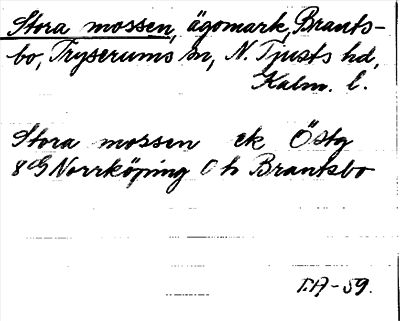 Stora mossen, ägomark, Brants-
bo, Tryserums sn, N. Tjusts hd,
Kalm. l.
Stora mossen ek Östg
8G Norrköping Oh Brantsbo
T.A-59.